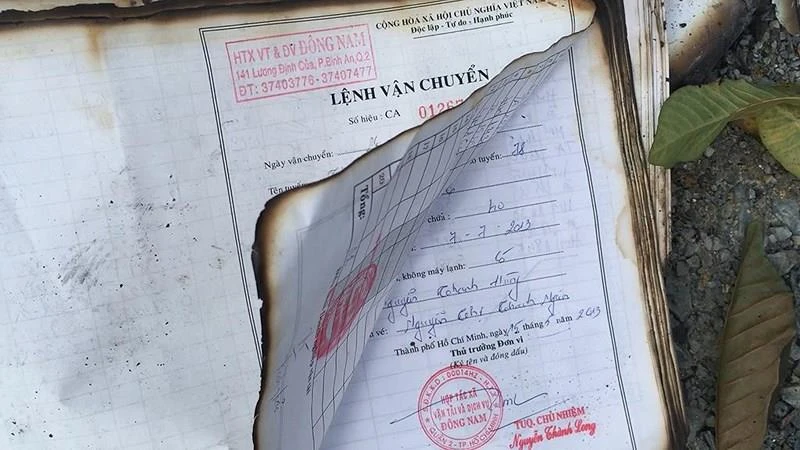 CỘNG HÒA XÃ HỘI CHỦ NGHĨA VIỆT NAM
Độc lập - Tự do - Hạnh phúc
HTX VT & DV ĐÔNG NAM
141 Lương Định Của, P.Bình An, Q.2
ĐT: 37403776 - 37407477
LỆNH VẬN CHUYỂN
Số hiệu : CA 0126
Ngày vận chuyển:
Tên tuyến
tuyến: 38
Tổng:
chữa:
7 - 7 - 2013
không máy lạnh: 6
Nguyễn Thanh Hùng
vé: Nguyễn Thị Thanh
Thành phố Hồ Chí Minh, ngày 15 tháng 5 2013
Thủ trưởng Đơn vị
(Ký tên và đóng dấu)
S.Đ.K.K.D: 00014H2 - H.T.X
HỢP TÁC XÃ
VẬN TẢI VÀ DỊCH VỤ
ĐÔNG NAM
QUẬN 2 - TP.HỒ CHÍ MINH
TUQ. CHỦ NHIỆM
Nguyễn Thành Long